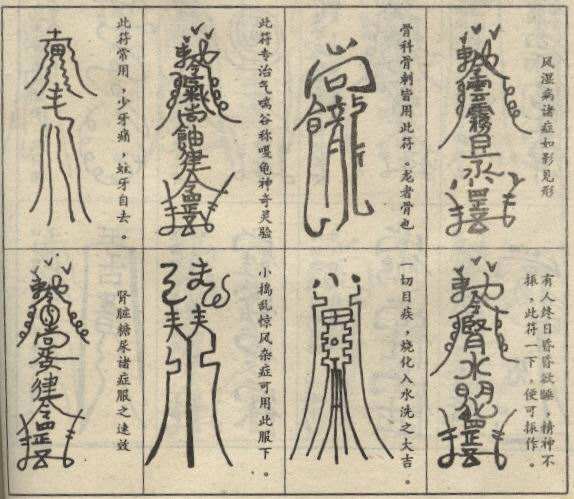 风湿病诸症如影见形
骨科骨刺皆用此符。龙者骨也
此符专治气喘谷称嘎龟神奇灵验
此符常用，少牙痛，蛀牙自去。
有人终日昏昏欲睡，精神不
振，此符一下，便可振作。
一切目疾，烧化入水洗之大吉。
小捣乱惊风杂症可用此服下。
肾脏糖尿诸症服之速效